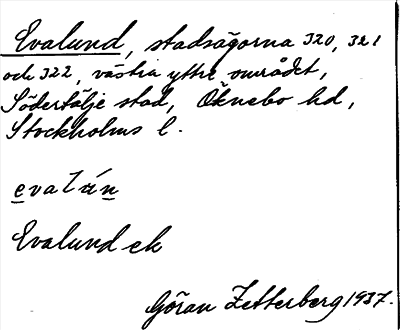 Evalund, stadsägorna 320, 321
och 322, västra yttre området,
Södertälje stad, Öknebo hd,
Stockholms l.
evalán
Evalund ek
Göran Zetterberg 1937.